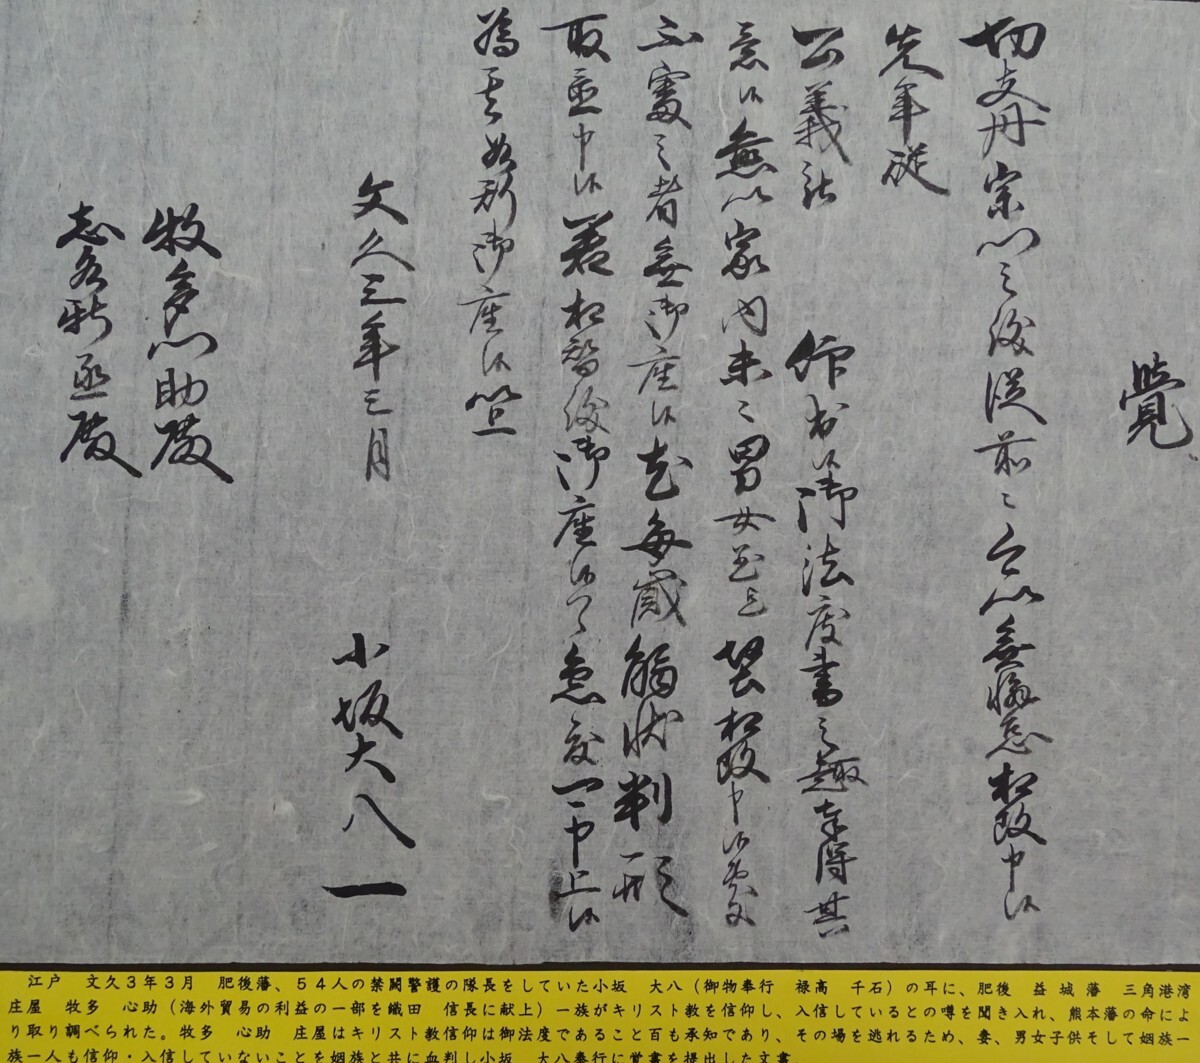 覺
切支丹宗門之儀従前々今以無懈怠相改申候
先年従
公義被 仰出候御法度書之趣奉得其
意候無以家内末々男女至迄堅相改申候處
不審之者無御座候尤毎歳觸状判形之
取置申候若相替儀御座候ハヽ急度可申上候
為其如斯御座候以上
文久三年三月 小坂大八
牧多心助殿
志水新丞殿
江戸 文久3年3月 肥後藩、54人の禁闕警護の隊長をしていた小坂 大八(御物奉行 禄高 千石)の耳に、肥後 益城藩 三角港湾
庄屋 牧多 心助(海外貿易の利益の一部を織田 信長に献上)一族がキリスト教を信仰し、入信しているとの噂を聞き入れ、熊本藩の命によ
り取り調べられた。牧多 心助 庄屋はキリスト教信仰は御法度であること百も承知であり、その場を逃れるため、妻、男女子供そして姻族一
族一人も信仰・入信していないことを姻族と共に血判し小坂 大八奉行に覚書を提出した文書